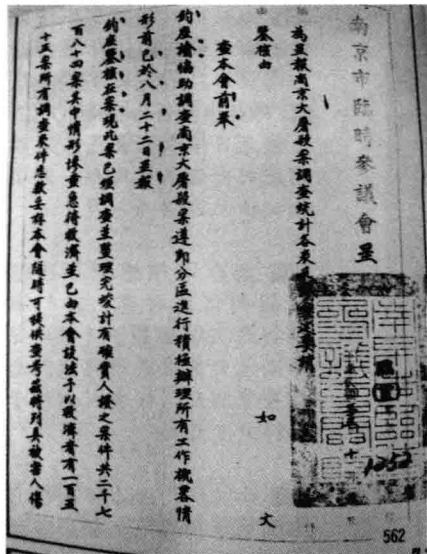 南京市臨時參議會呈
為呈報南京大屠殺案調查統計各表
鑒核由
如
文
查本會前奉
鈞座諭協助調查南京大屠殺案遵即分區進行積極辦理所有工作概畧情
形前已於八月二十二日呈報
鈞座鑒核在案現此案已經調查並整理完竣計有確實人證之案件共二千七
百八十四案其中情形慘重急待救濟並已由本會設法予以救濟者有一百五
十五案所有調查案件悉數妥存本會隨時可提供參考茲將列具被害人傷
1252
562